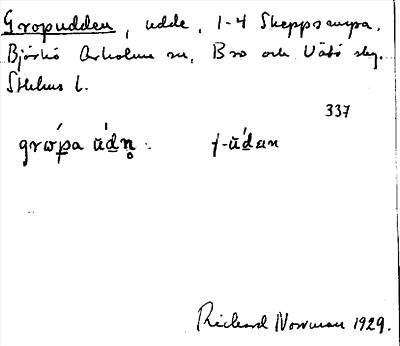 Gropudden, udde, 1-4 Skeppsrumpa.
Björkö Arholma sn, Bro och Vätö skg.
Sthlms l.
337
grώpa ū́dn̥ : f-ū́dεn
Richard Norrman 1929.